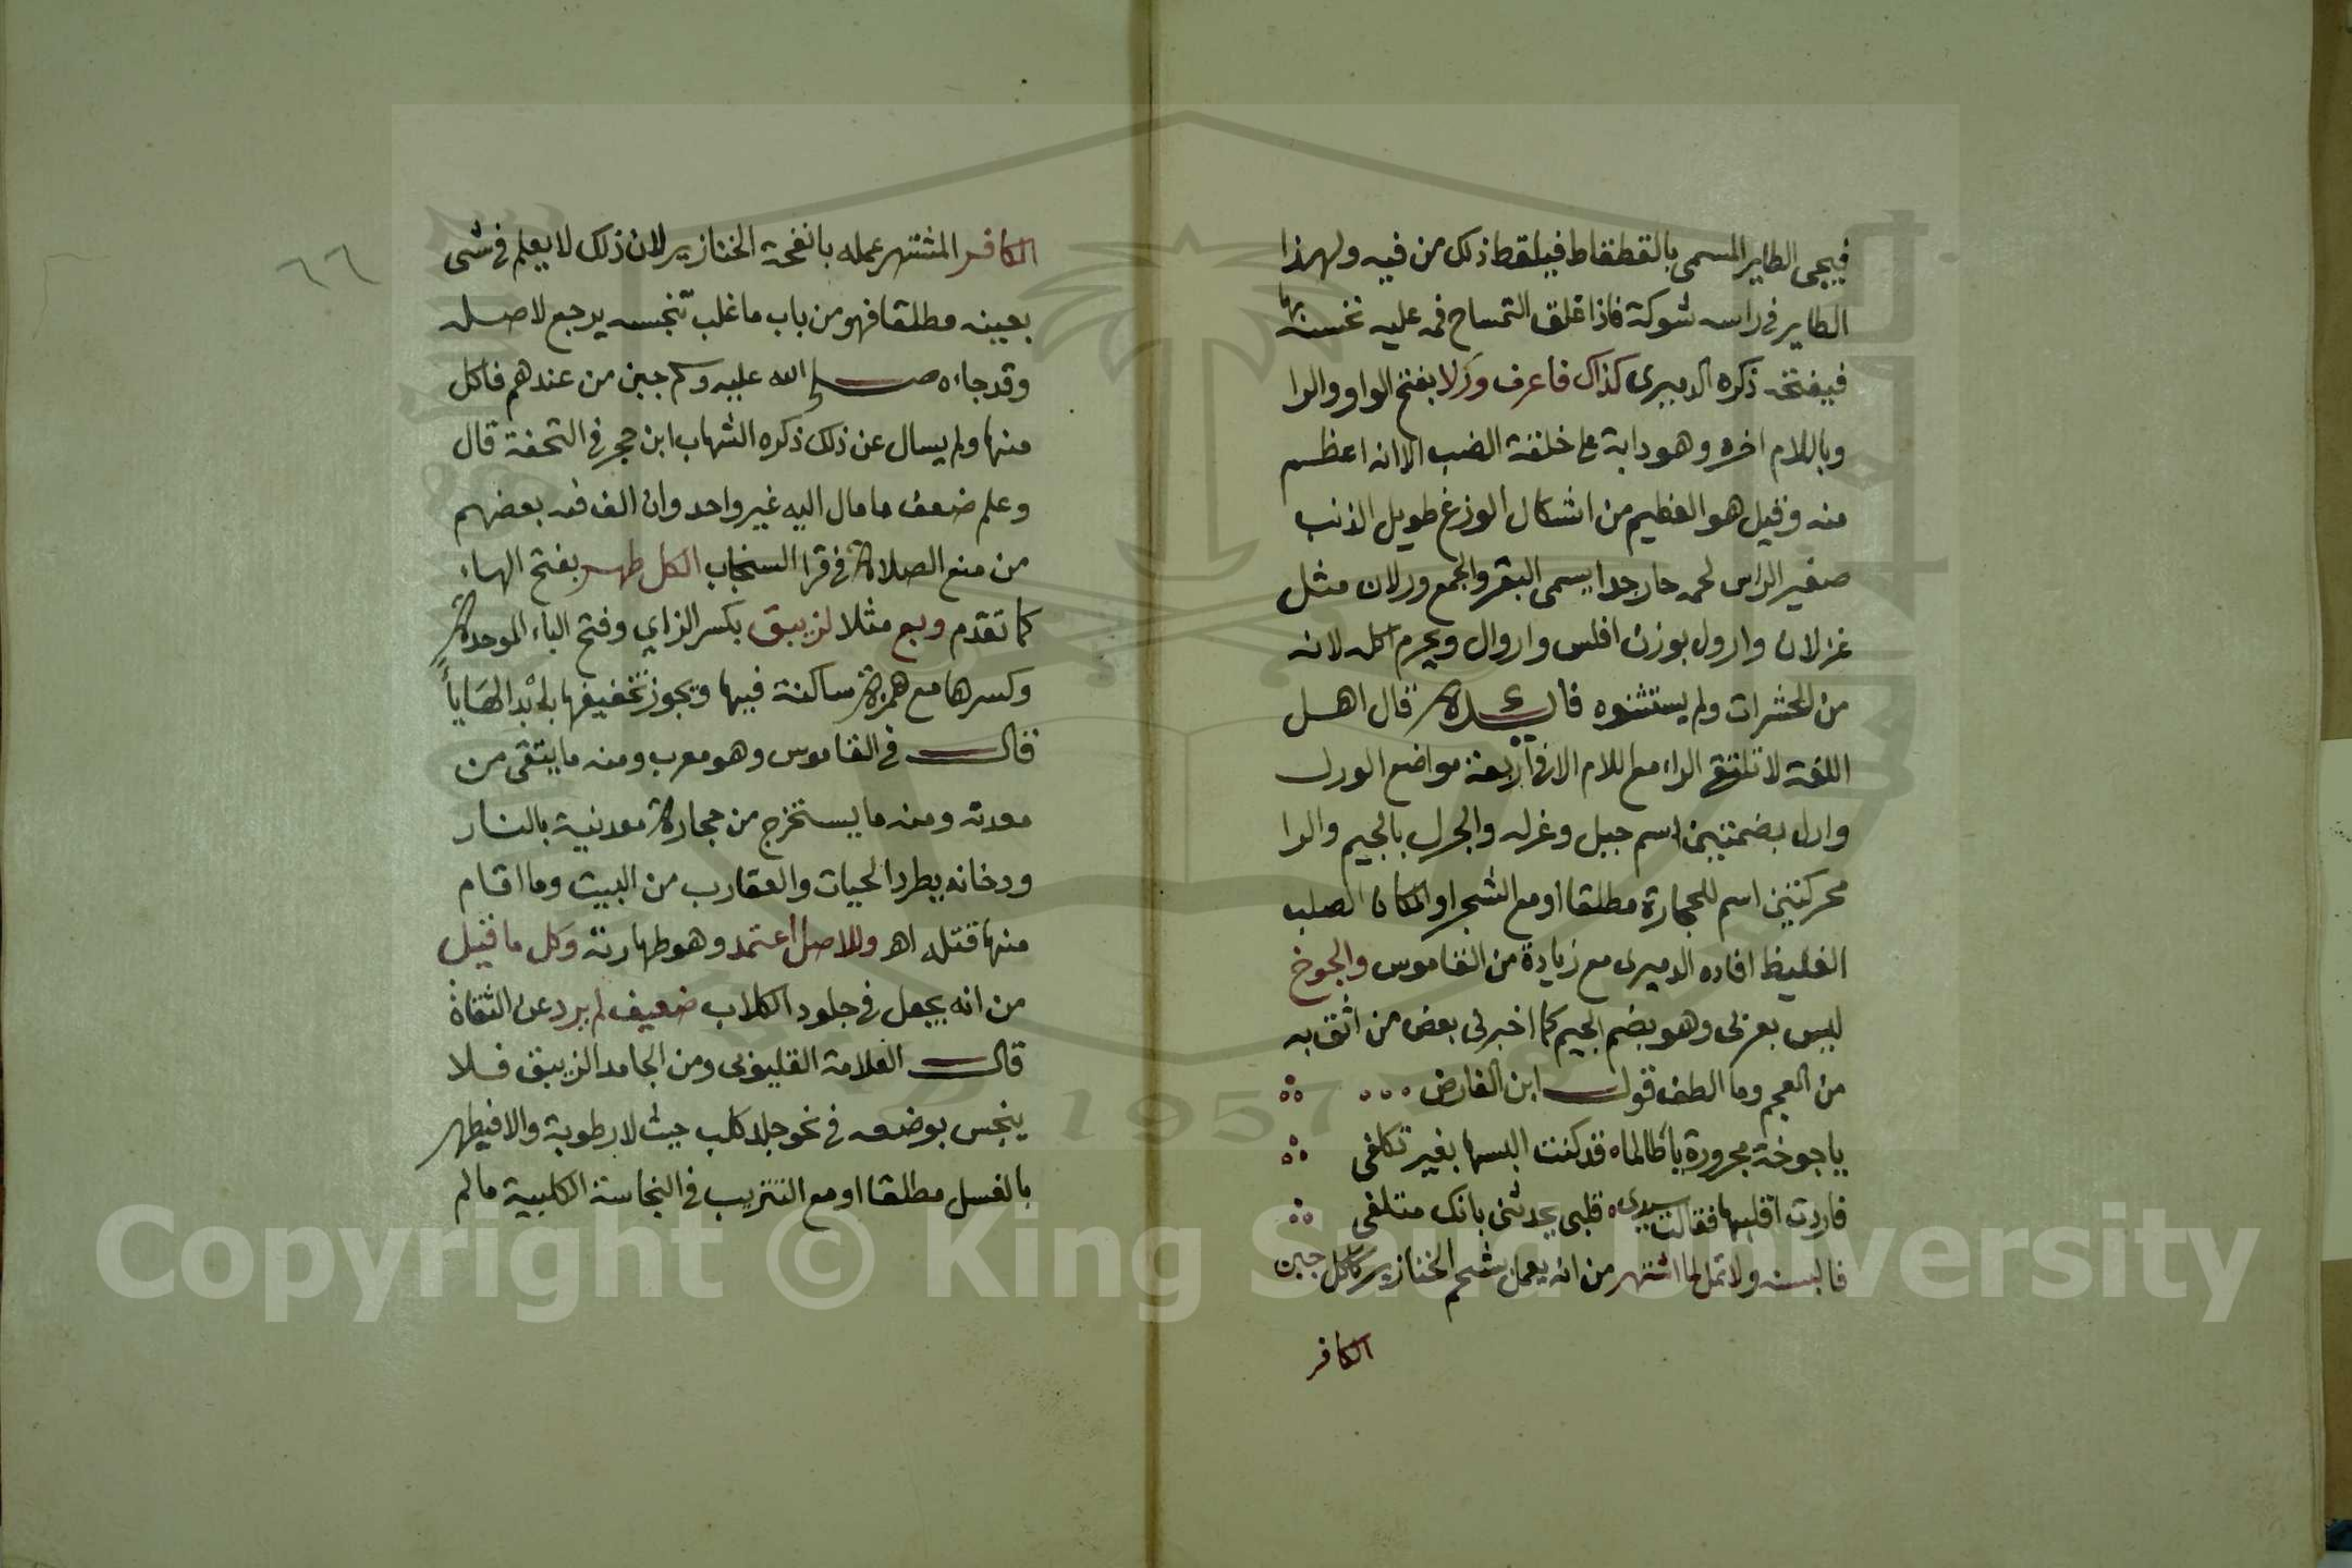 فيجى الطاير المسمى بالقطقاط فيلقط ذلك من فيه ولهذا
الطاير فى راسه شوكة فاذا غلق التمساح فمه عليه نخسه بها
فيفتحه ذكره الدميرى كذاك فاعرف ورلا بفتح الواو والرا
وباللام اخره وهو دابة على خلقة الضب الا انه اعظم
منه وقيل هو العظيم من اشكال الوزغ طويل الذنب
صغير الراس لحمه حار جدا يسمى البقر والجمع ورلان مثل
غزلان وارول بوزن افلس واروال ويحرم اكله لانه
من الحشرات ولم يستثنوه فايدة قال اهل
اللغة لا تلتقى الراء مع اللام الا فى اربعة مواضع الورل
وارل بضمتين اسم جبل وغرله والجرل بالجيم والرا
محركتين اسم للحجارة مطلقا او مع الشجر او المكان الصلب
الغليظ افاده الدميرى مع زيادة من القاموس والجوخ
ليس بعربى وهو بضم الجيم كما اخبرنى بعض من اثق به
من العجم وما الطف قول ابن الفارض
يا جوخة مجرودة يا طالما قد كنت البسها بغير تكلفى
فاردت اقلبها فقالت سيدى قلبى يحدثنى بانك متلفى
فالبسنه ولا تمل لما اشتهر من انه يعمل بشحم الخنازير ككل جبن
الكافر
٦٦
الكافر المشتهر عمله بانفحة الخنازير لان ذلك لا يعلم فى شى
بعينه مطلقا فهو من باب ما غلب تنجسه يرجع لاصله
وقد جاءه صلى الله عليه وسلم جبن من عندهم فاكل
منها ولم يسال عن ذلك ذكره الشهاب ابن حجر فى التحفة قال
وعلم ضعف ما مال اليه غير واحد وان الف فيه بعضهم
من منع الصلاة فى قرا السنجاب الكل طهر بفتح الهاء
كما تقدم وبع مثلا لزيبق بكسر الزاي وفتح الباء الموحدة
وكسرها مع همزة ساكنة فيها ويجوز تخفيفها بابدالها ياً
قال فى القاموس وهو معرب ومنه ما يتقى من
معدنه ومنه ما يستخرج من حجارة معدنية بالنار
ودخانه يطرد الحيات والعقارب من البيت وما اقام
منها قتله اهـ وللاصل اعتمد وهو طهارته وكل ما قيل
من انه يجعل فى جلود الكلاب ضعيف لم يرد عن الثقاة
قال العلامة القليوبى ومن الجامد الزيبق فلا
ينجس بوضعه فى نحو جلد كلب حيث لا رطوبة والا فيطهر
بالغسل مطلقا او مع التتريب فى النجاسة الكلبية ما لم
Copyright © King Saud University
1957